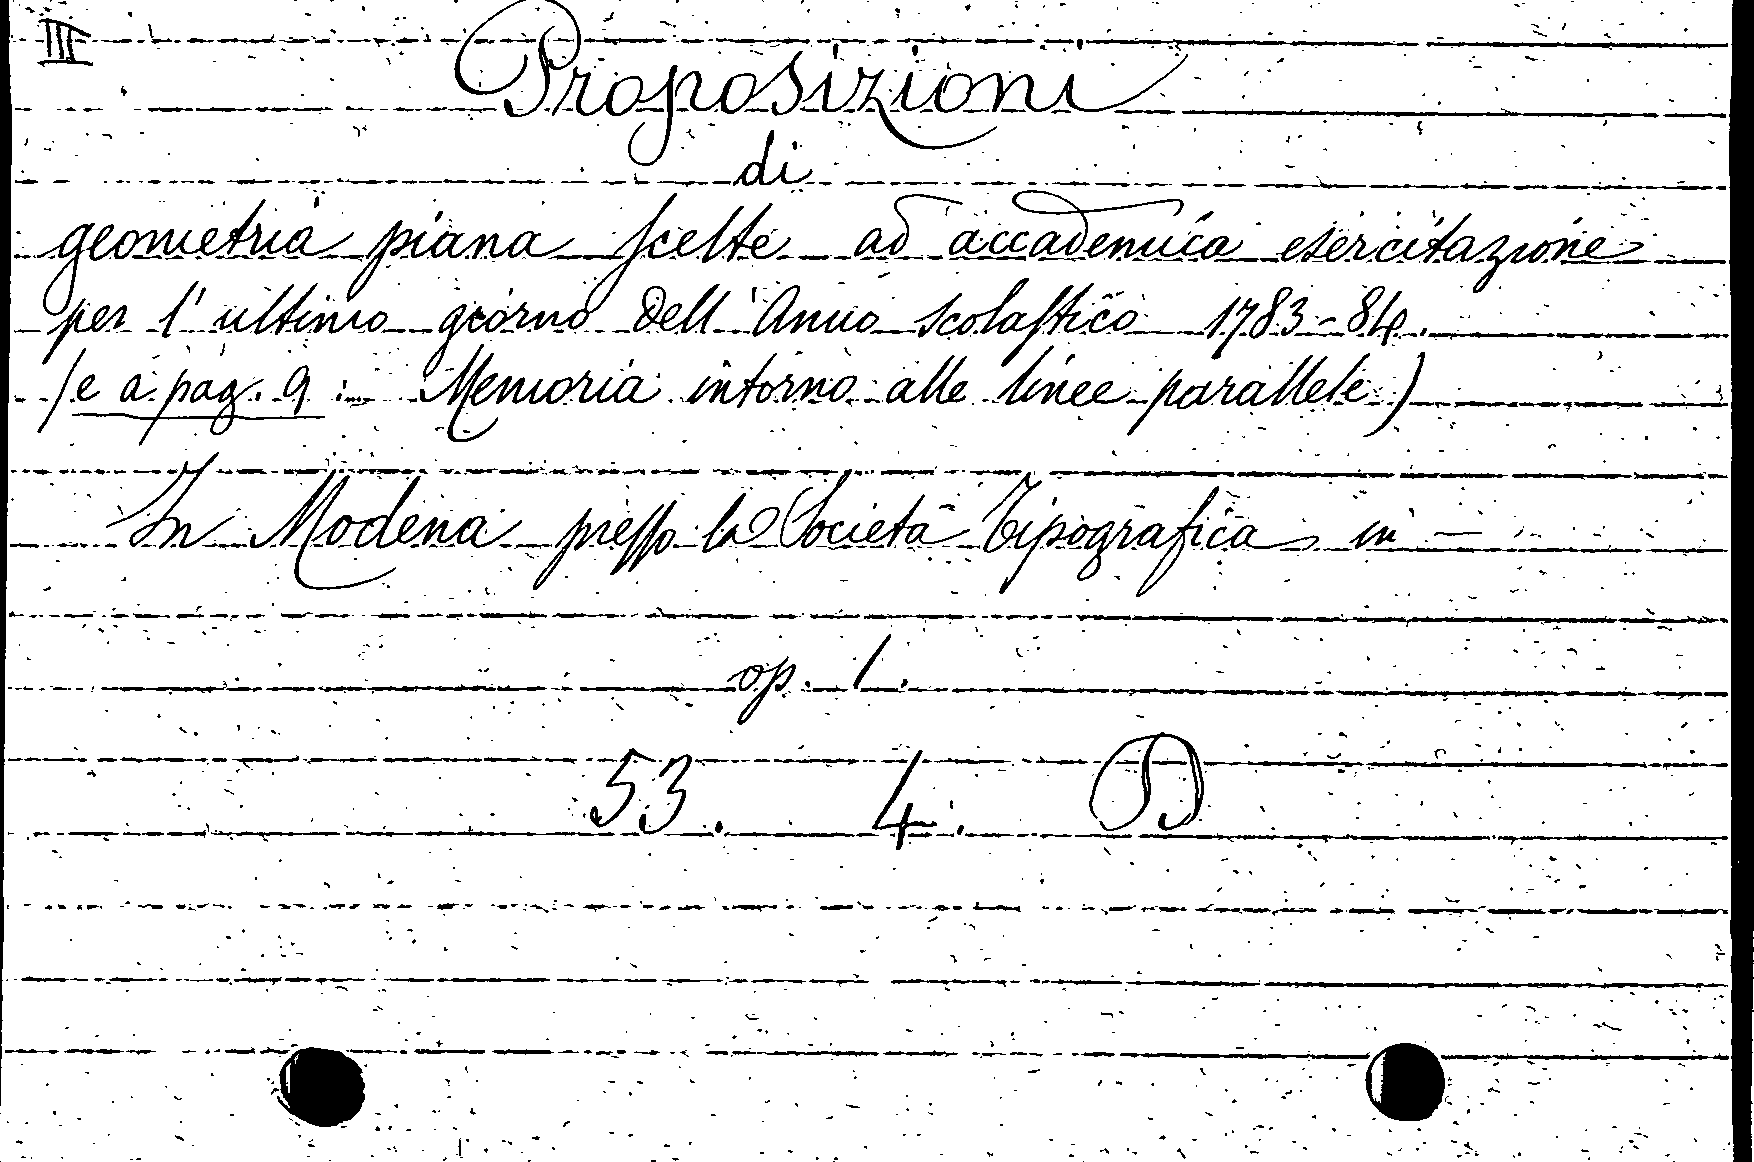 III
Proposizioni
di
geometria piana scelte ad accademica esercitazione
per l'ultimo giorno dell'Anno scolastico 1783-84.
(e a pag. 9: Memoria intorno alle linee parallele)
In Modena presso la Società Tipografica in -
op. 1.
53. 4. D